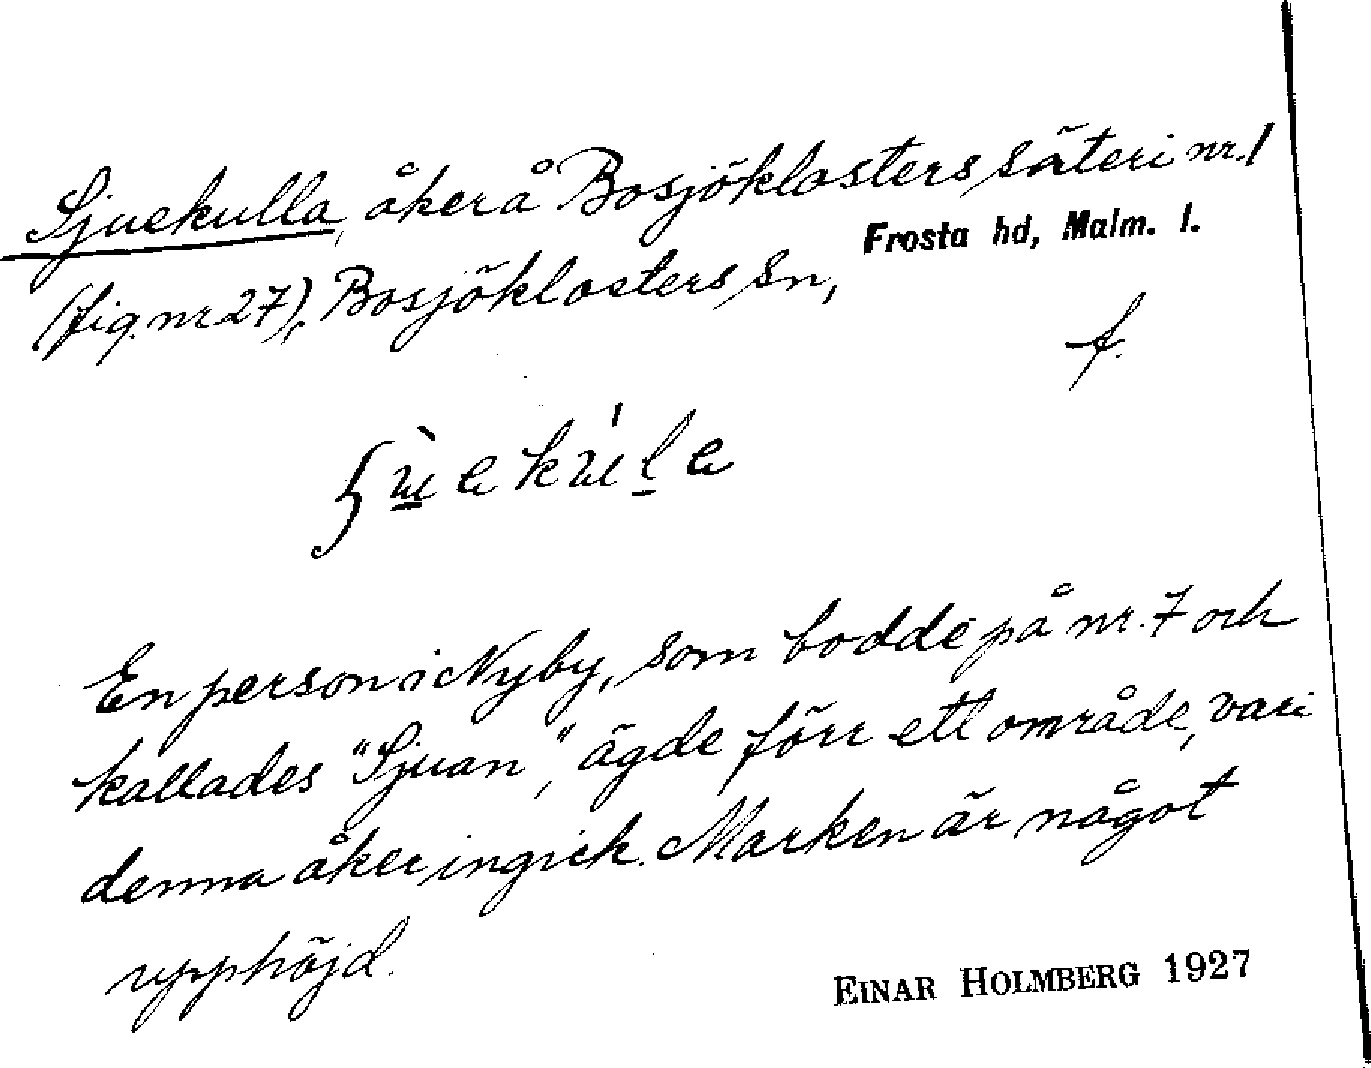 Sjuekulla, åker å Bosjöklosters säteri nr. 1
Frosta hd, Malm. l.
(fig. nr 27), Bosjöklosters sn,
f.
En person i Nyby, som bodde på nr. 7 och
kallades "Sjuan", ägde förr ett område, vari
denna åker ingick. Marken är något
upphöjd.
EINAR HOLMBERG 1927